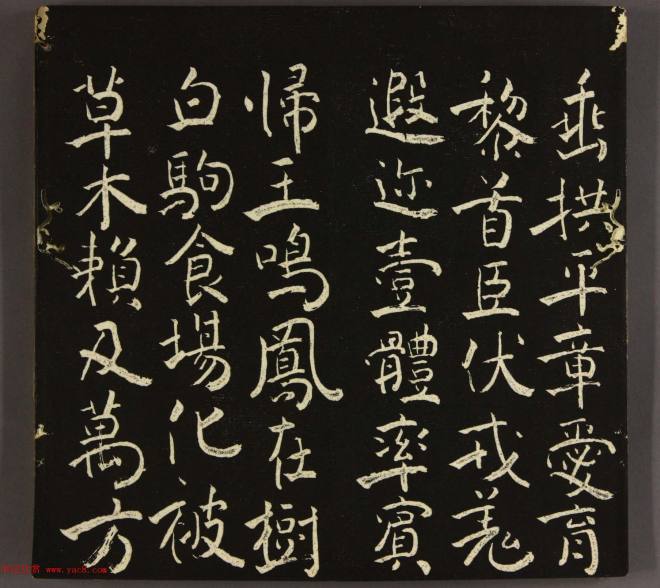 垂拱平章愛育
黎首臣伏戎羌
遐迩壹體率賓
歸王鳴鳳在樹
白駒食場化被
草木賴及萬方
www.yac8.com